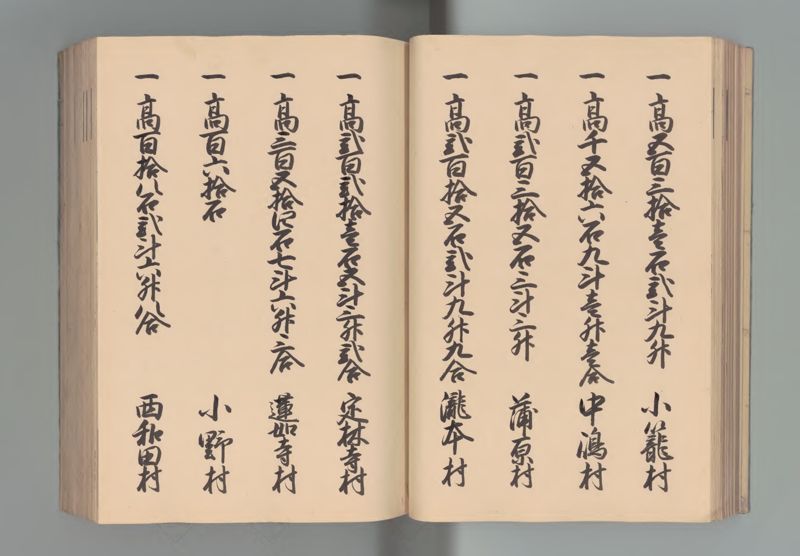 一 高五百三拾壱石弐斗九升 小籠村
一 高千五拾六石九斗壱升壱合 中嶋村
一 高弐百三拾五石三斗三升 蒲原村
一 高弐百拾五石弐斗九升九合 瀧本村
一 高弐百弐拾壱石五斗三升弐合 定林寺村
一 高三百五拾四石七斗六升三合 蓮如寺村
一 高百六拾石 小野村
一 高百拾八石弐斗六升八合 西和田村